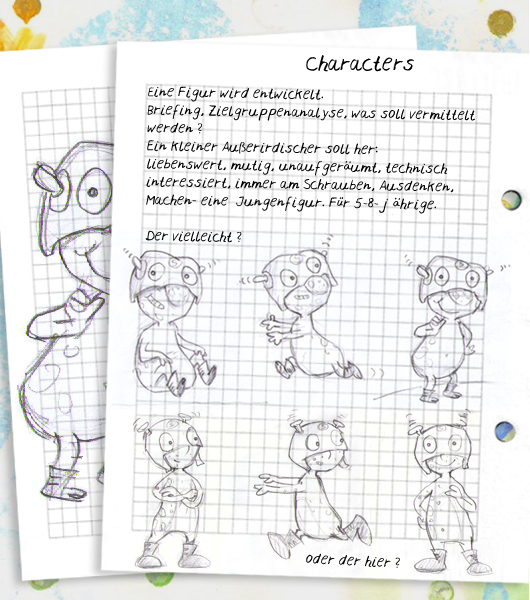 Characters
Eine Figur wird entwickelt.
Briefing, Zielgruppenanalyse, was soll vermittelt
werden ?
Ein kleiner Außerirdischer soll her:
liebenswert, mutig, unaufgeräumt, technisch
interessiert, immer am Schrauben, Ausdenken,
Machen- eine Jungenfigur. Für 5-8- j ährige.
Der vielleicht ?
oder der hier ?